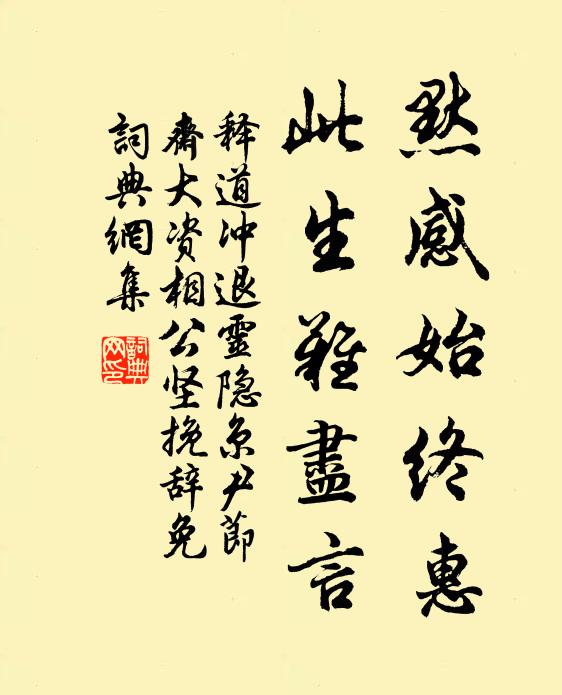 默感始终惠
此生難盡言
释道冲退靈隐京尹節
齋大资相公坚挽辞免
詞典網集
詞典
网印